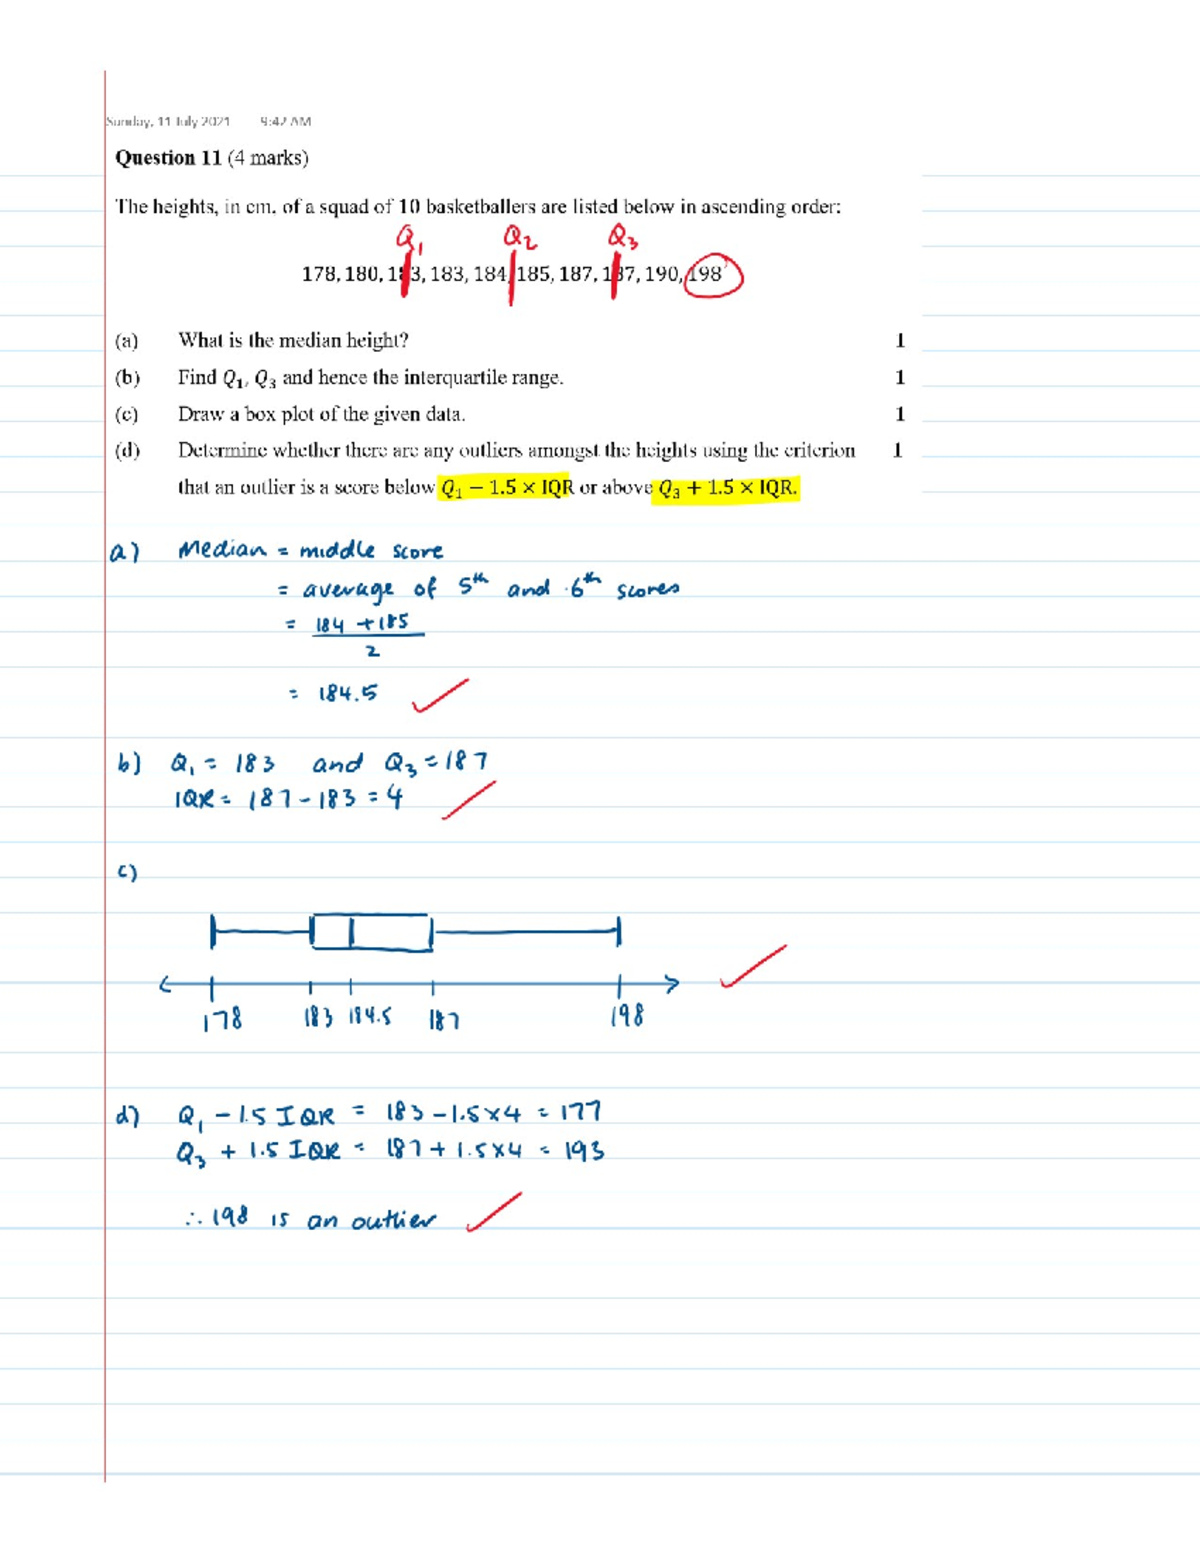 Sunday, 11 July 2021 9:42 AM
Question 11 (4 marks)
The heights, in cm, of a squad of 10 basketballers are listed below in ascending order:
Q₁ Q₂ Q₃
178, 180, 183, 183, 184, 185, 187, 187, 190, 198
(a) What is the median height? 1
(b) Find Q₁, Q₃ and hence the interquartile range. 1
(c) Draw a box plot of the given data. 1
(d) Determine whether there are any outliers amongst the heights using the criterion 1
that an outlier is a score below Q₁ − 1.5 × IQR or above Q₃ + 1.5 × IQR.
a) Median = middle score
= average of 5th and 6th scores
= 184 + 185
2
= 184.5
b) Q₁ = 183 and Q₃ = 187
IQR = 187 - 183 = 4
c)
178 183 184.5 187 198
d) Q₁ - 1.5 IQR = 183 - 1.5 × 4 = 177
Q₃ + 1.5 IQR = 187 + 1.5 × 4 = 193
∴ 198 is an outlier